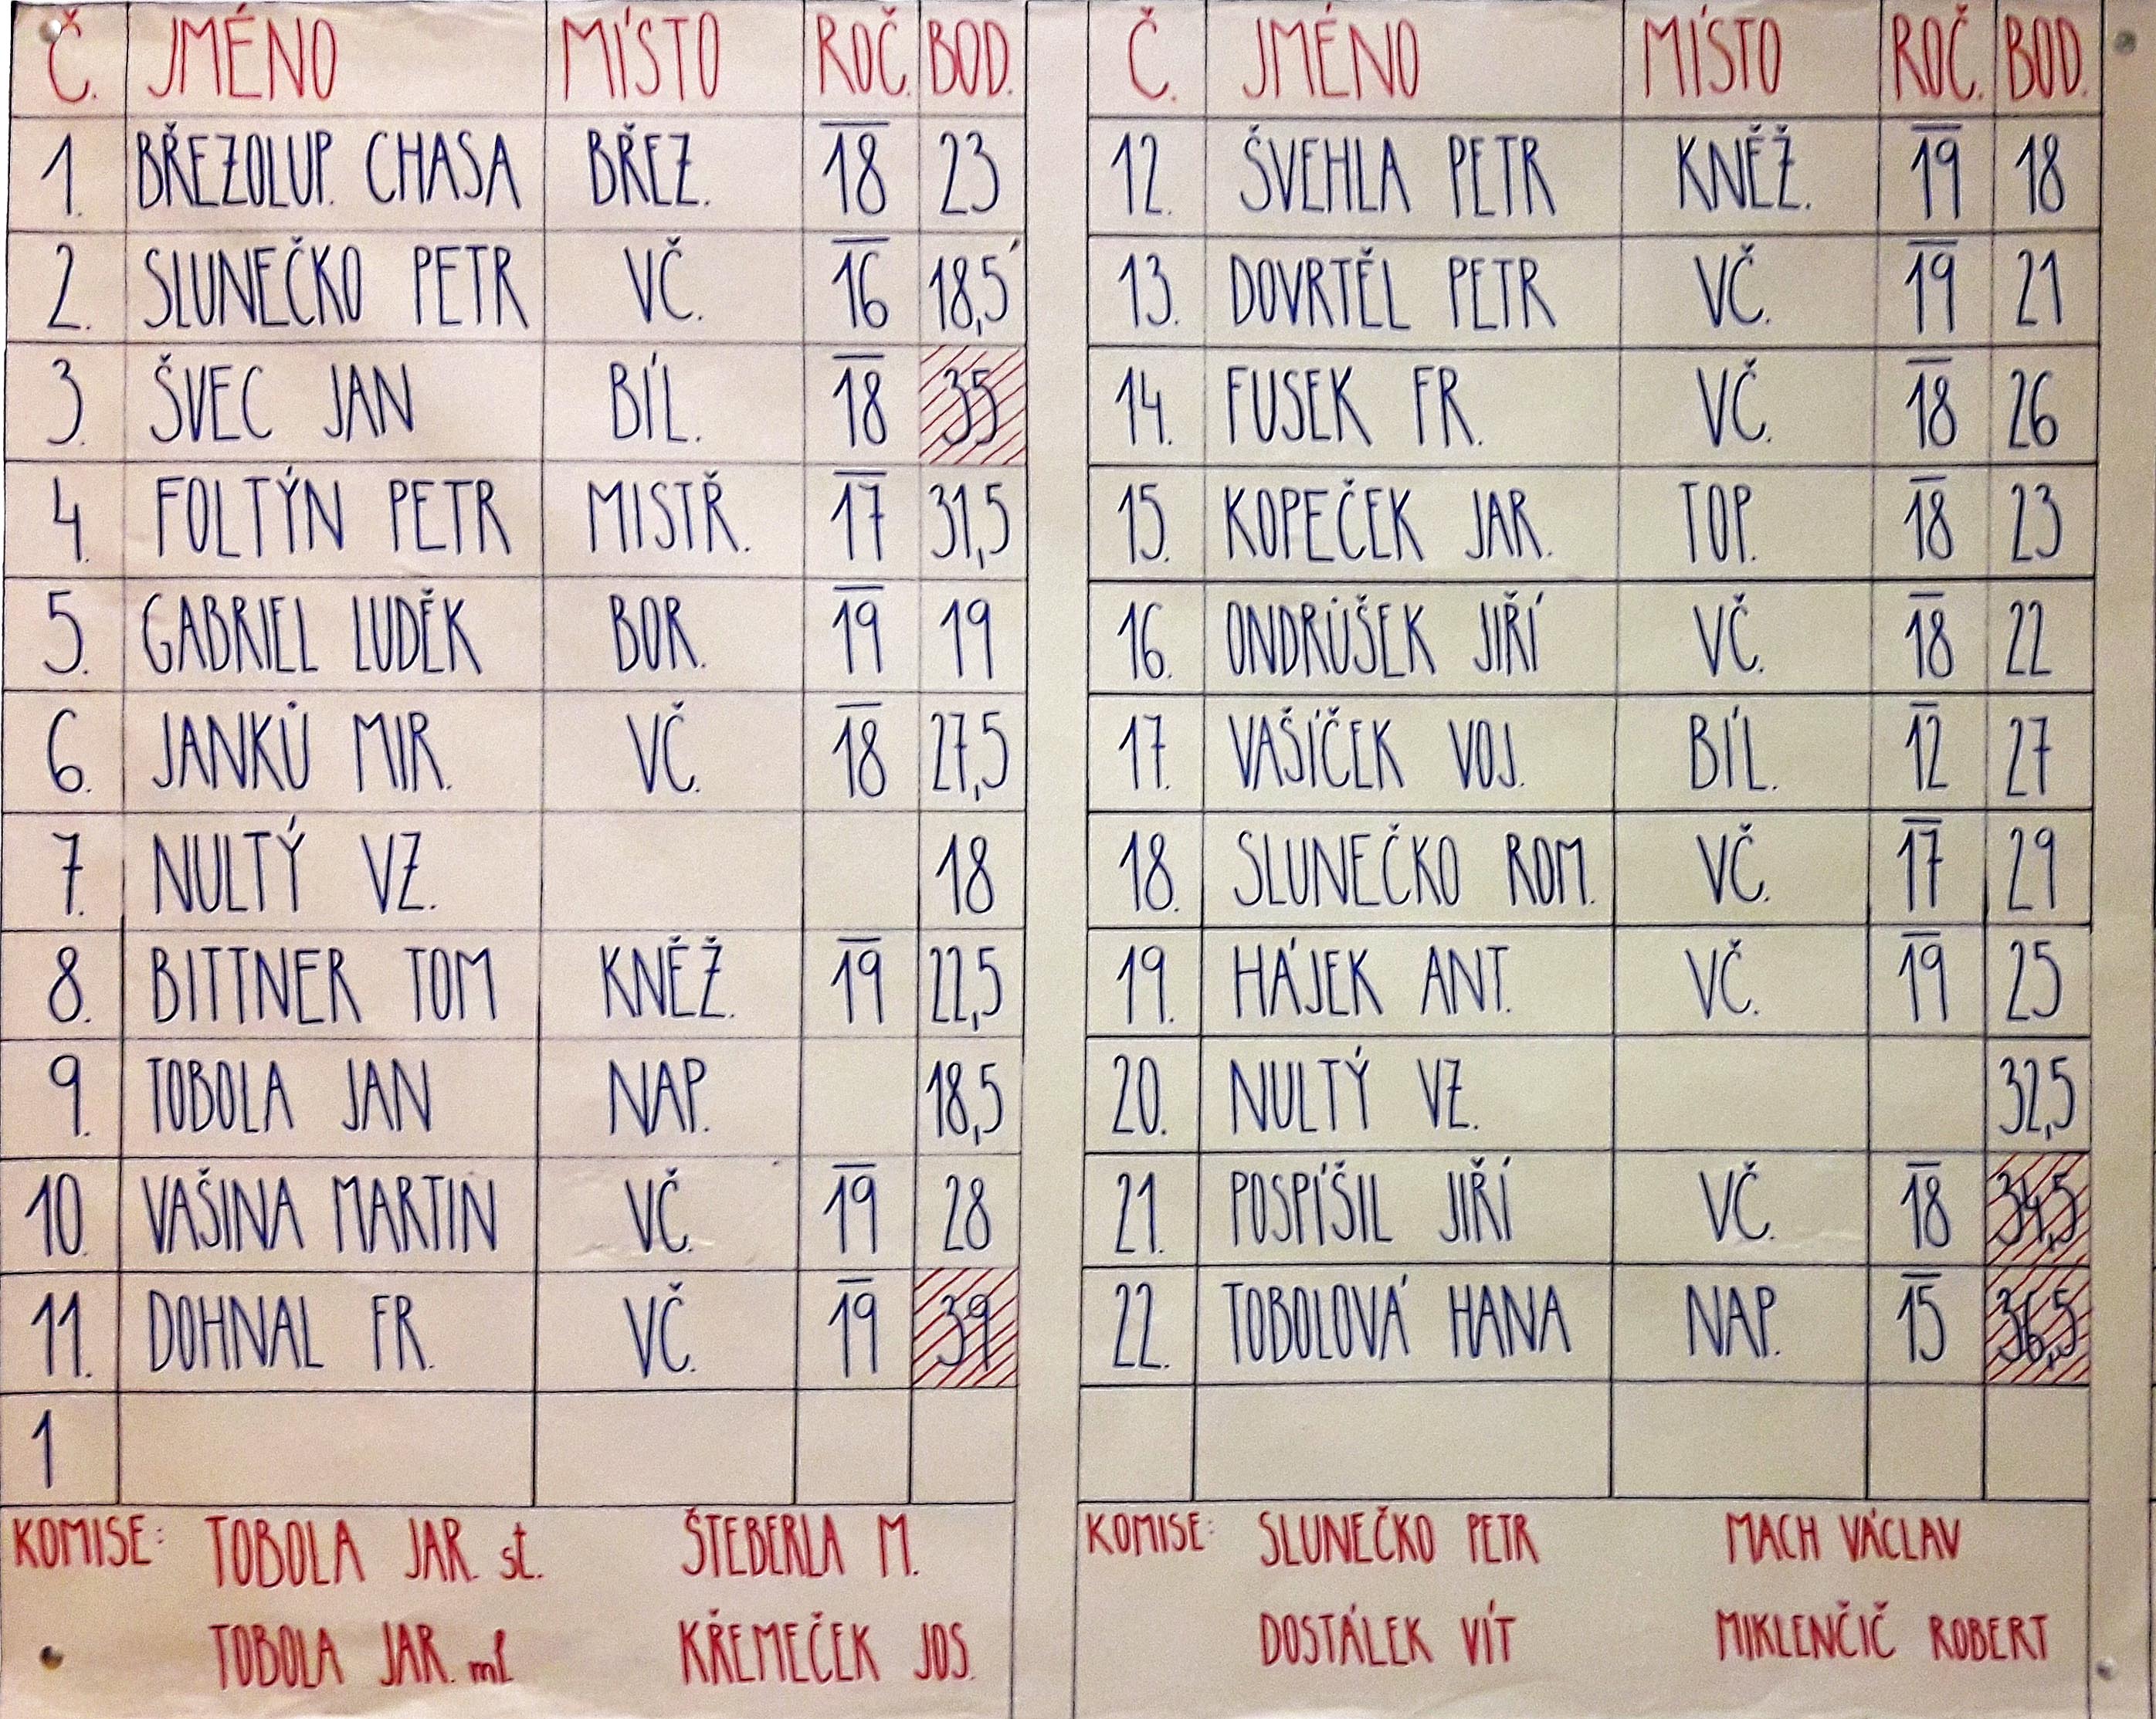 Č. JMÉNO MÍSTO ROČ. BOD.
1. BŘEZOLUP. CHASA BŘEZ. 18 23
2. SLUNEČKO PETR VČ. 16 18,5
3. ŠVEC JAN BÍL. 18 35
4. FOLTÝN PETR MISTŘ. 17 31,5
5. GABRIEL LUDĚK BOR. 19 19
6. JANKŮ MIR. VČ. 18 27,5
7. NULTÝ VZ. 18
8. BITTNER TOM KNĚŽ. 19 22,5
9. TOBOLA JAN NAP. 18,5
10. VAŠINA MARTIN VČ. 19 28
11. DOHNAL FR. VČ. 19 39
1
KOMISE: TOBOLA JAR. st. ŠTEBERLA M.
TOBOLA JAR. ml. KŘEMEČEK JOS.
Č. JMÉNO MÍSTO ROČ. BOD.
12. ŠVEHLA PETR KNĚŽ. 19 18
13. DOVRTĚL PETR VČ. 19 21
14. FUSEK FR. VČ. 18 26
15. KOPEČEK JAR. TOP. 18 23
16. ONDRŮŠEK JIŘÍ VČ. 18 22
17. VAŠÍČEK VOJ. BÍL. 12 27
18. SLUNEČKO ROM. VČ. 17 29
19. HÁJEK ANT. VČ. 19 25
20. NULTÝ VZ. 32,5
21. POSPÍŠIL JIŘÍ VČ. 18 34,5
22. TOBOLOVÁ HANA NAP. 15 36,5
KOMISE: SLUNEČKO PETR MACH VÁCLAV
DOSTÁLEK VÍT MIKLENČIČ ROBERT